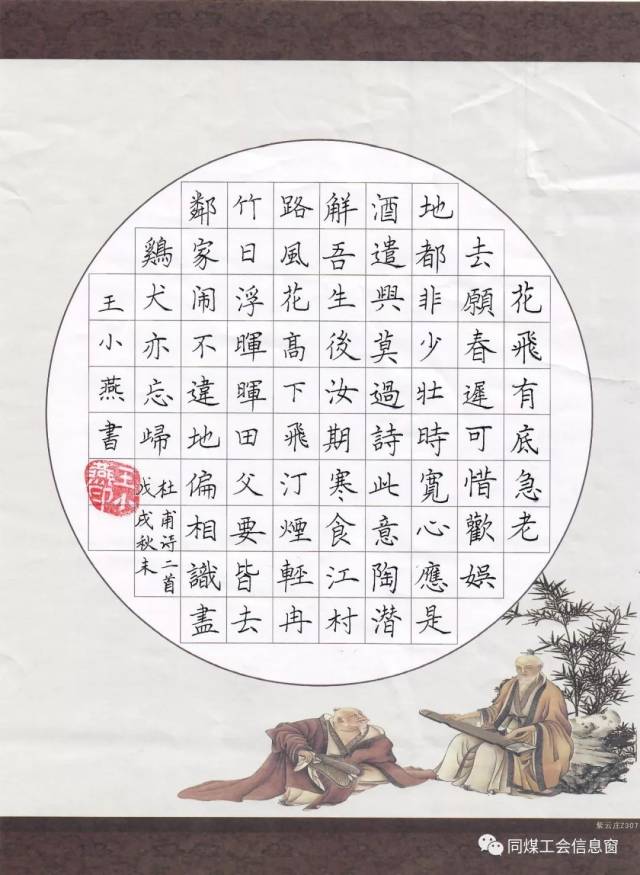 花飛有底急老
去願春遲可惜歡娛
地都非少壯時寬心應是
酒遣興莫過詩此意陶潜
觧吾生後汝期寒食江村
路風花髙下飛汀煙輕冉
竹日浮暉暉田父要皆去
鄰家闹不違地偏相識盡
鷄犬亦忘歸
杜甫诗二首
戊戌秋末
王小燕書
王小燕印
紫云庄Z307
同煤工会信息窗